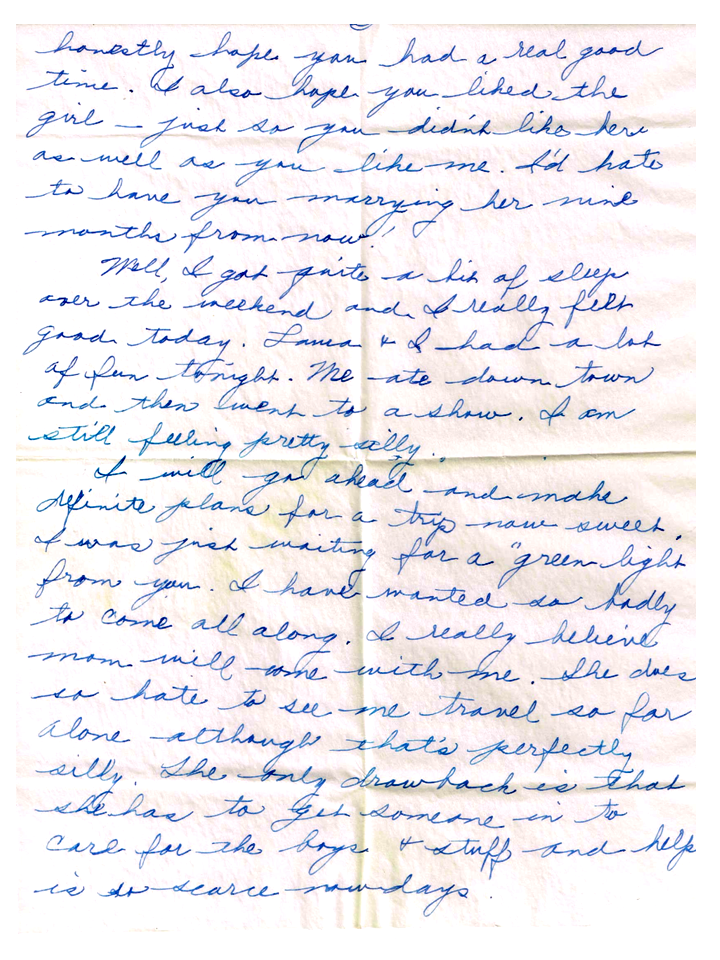 honestly hope you had a real good
time. I also hope you liked the
girl — just so you didn't like her
as well as you like me. I'd hate
to have you marrying her nine
months from now!
Well, I got quite a bit of sleep
over the weekend and I really felt
good today. Laura & I had a lot
of fun tonight. We ate down town
and then went to a show. I am
still feeling pretty silly.
I will go ahead and make
definite plans for a trip now sweet.
I was just waiting for a "green light
from you. I have wanted so badly
to come all along. I really believe
mom will come with me. She does
so hate to see me travel so far
alone although that's perfectly
silly. The only drawback is that
she has to get someone in to
care for the boys & stuff and help
is so scarce nowdays.